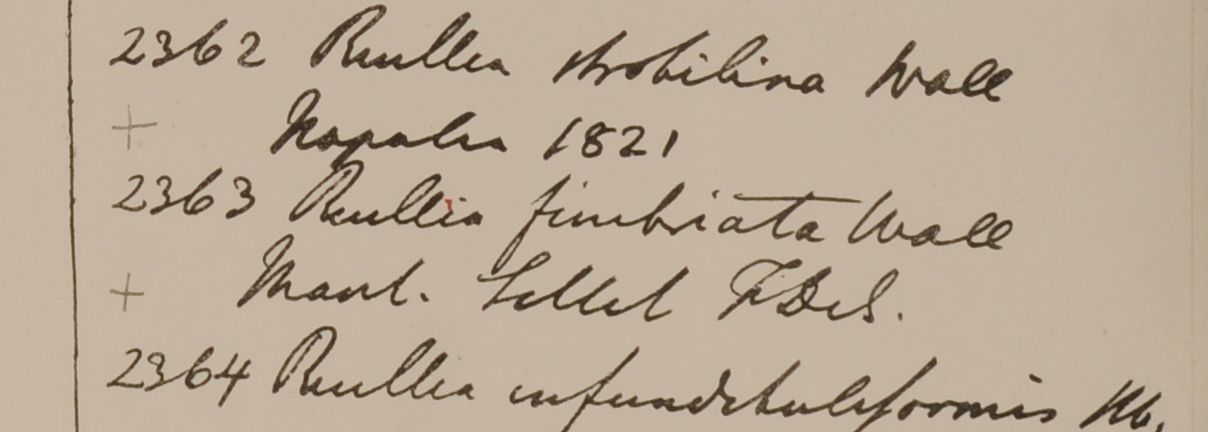 2362 Ruellia strobilina Wall
+ Napalia 1821
2363 Ruellia fimbriata Wall
+ Mont. Sillet F.D.S.
2364 Ruellia infundibuliformis Rb.